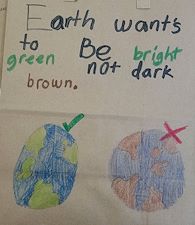 Earth want's
to Be bright
green not dark
brown.